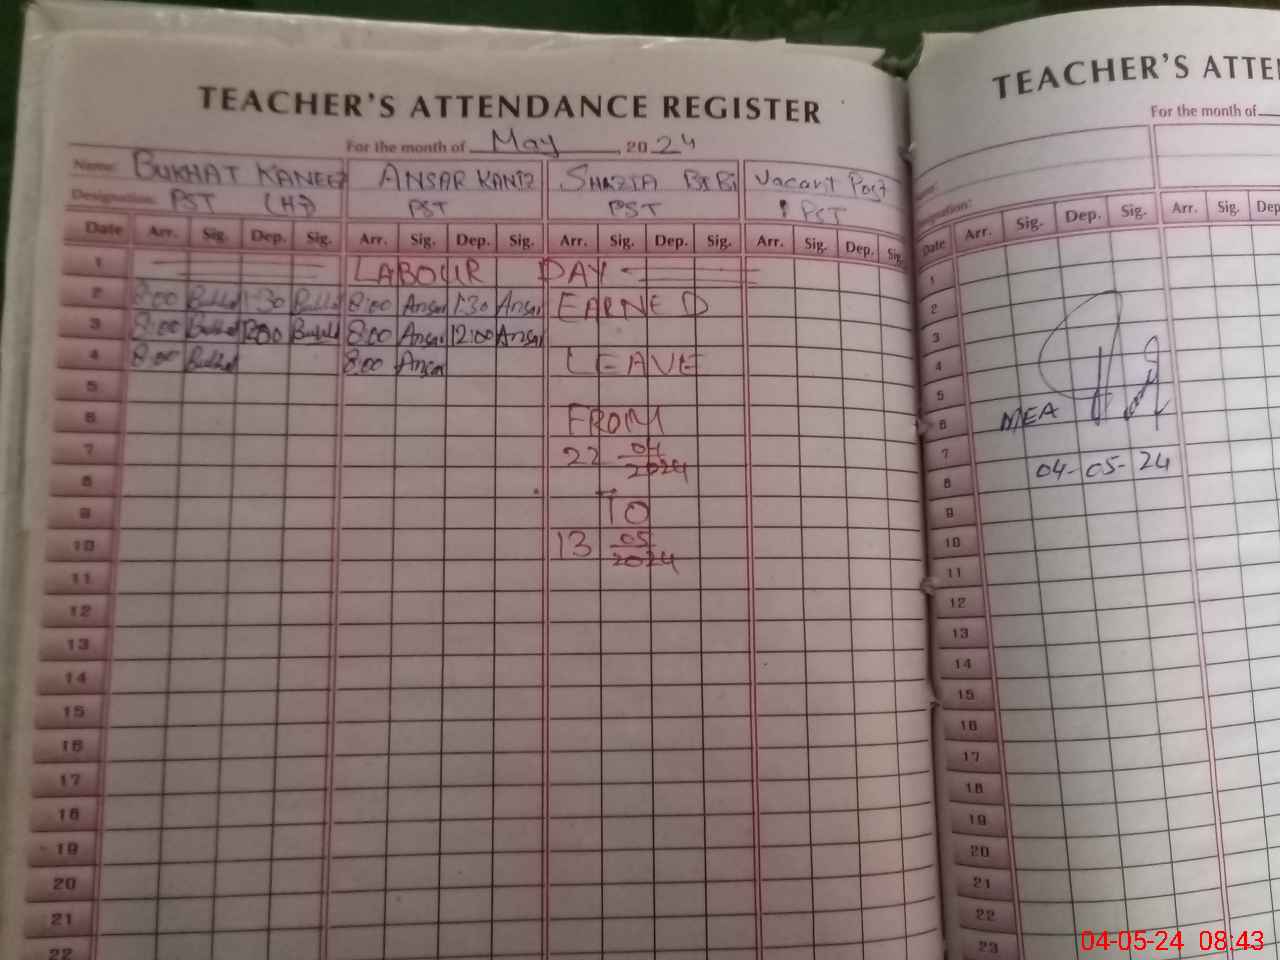 TEACHER'S ATTENDANCE REGISTER
For the month of May 2024
Name: BUKHAT KANEEZ ANSAR KANIZ SHAZIA BIBI Vacant Post
Designation: PST (HT) PST PST PST
Date Arr. Sig. Dep. Sig. Arr. Sig. Dep. Sig. Arr. Sig. Dep. Sig. Arr. Sig. Dep. Sig.
1 LABOUR DAY
2 8:00 Bukhat 1:30 Bukhat 8:00 Ansar 1:30 Ansar EARNED
3 8:00 Bukhat 12:00 Bukhat 8:00 Ansar 12:00 Ansar
4 8:00 Bukhat 8:00 Ansar LEAVE
5
6 FROM
7 22 04/2024
8
9 TO
10 13 05/2024
11
12
13
14
15
16
17
18
19
20
21
22
TEACHER'S ATTE
For the month of
Date Arr. Sig. Dep. Sig. Arr. Sig. Dep
1
2
3
4
5
6 MEA
7 04-05-24
8
9
10
11
12
13
14
15
16
17
18
19
20
21
22
23
04-05-24 08:43